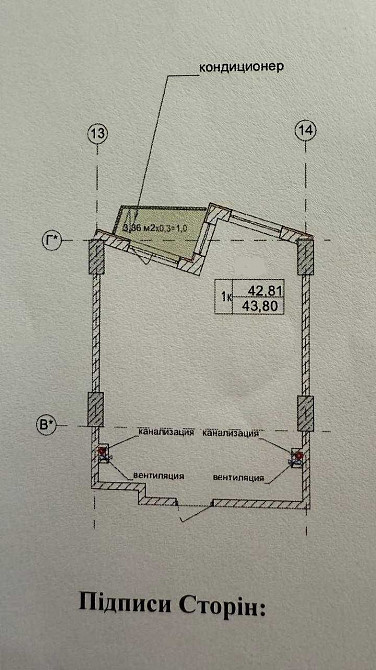 кондиционер
13
14
3,36 м2х0,3=1,0
Г*
1к
42,81
43,80
В*
канализация
канализация
вентиляция
вентиляция
Підписи Сторін: